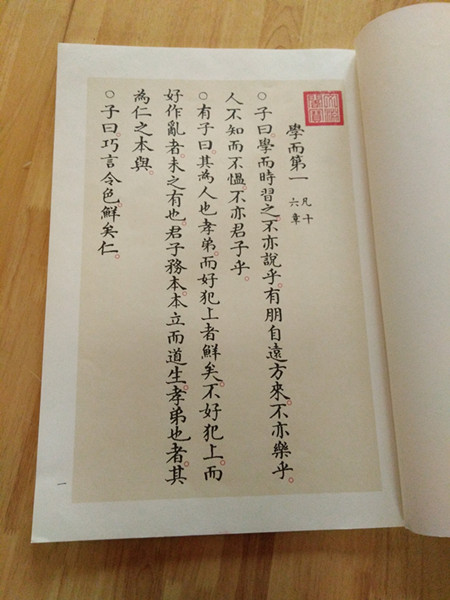 學而第一
凡十
六章
○子曰。學而時習之。不亦說乎。有朋自遠方來。不亦樂乎。
人不知而不慍。不亦君子乎。
○有子曰。其為人也孝弟。而好犯上者鮮矣。不好犯上。而
好作亂者。未之有也。君子務本。本立而道生。孝弟也者。其
為仁之本與。
○子曰。巧言令色。鮮矣仁。
一